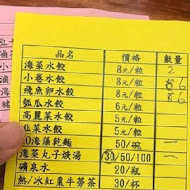 品名 價格 數量
海菜水餃 8元/粒 2
小卷水餃 8元/粒
飛魚卵水餃 8元/粒 6
瓠瓜水餃 6元/粒 8
高麗菜水餃 5元/粒
韭菜水餃 5元/粒
滷乾麵 50/碗 一
海菜丸子燒湯 30/50/100 二
礦泉水 20/瓶
熱/冰紅棗牛蒡茶 30/杯